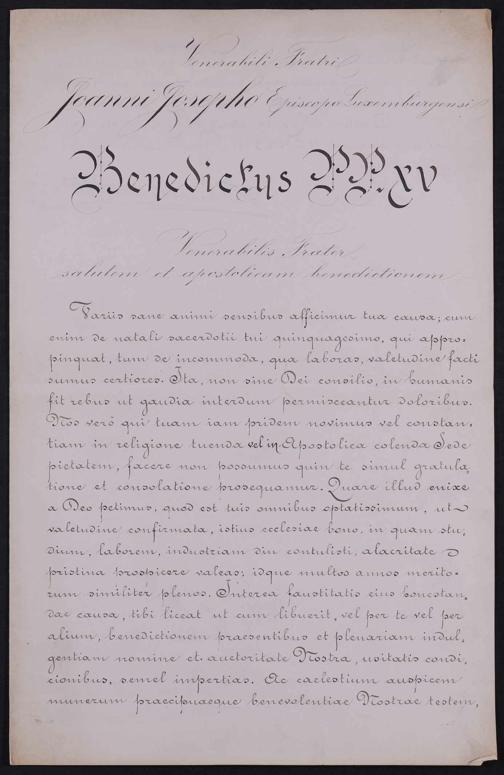 Venerabili Fratri
Joanni Josepho Episcopo Luxemburgensi
Benedictus PP. XV
Venerabilis Frater
salutem et apostolicam benedictionem
Variis sane animi sensibus afficimur tua causa; cum
enim de natali sacerdotii tui quinquagesimo, qui appro-
pinquat, tum de incommoda, qua laboras, valetudine facti
sumus certiores. Ita, non sine Dei consilio, in humanis
fit rebus ut gaudia interdum permisceantur doloribus.
Nos vero qui tuam iam pridem novimus vel constan-
tiam in religione tuenda vel in Apostolica colenda Sede
pietatem, facere non possumus quin te simul gratula,
tione et consolatione prosequamur. Quare illud enixe
a Deo petimus, quod est tuis omnibus optatissimum, ut
valetudine confirmata, istius ecclesiae bono, in quam stu,
dium, laborem, industriam diu contulisti, alacritate
pristina prospicere valeas; idque multos annos merito-
rum similiter plenos. Interea faustitatis eius honestan,
dae causa, tibi liceat ut cum libuerit, vel per te vel per
alium, benedictionem praesentibus et plenariam indul,
gentiam nomine et auctoritate Nostra, usitatis condi,
cionibus, semel impertias. Ac caelestium auspicem
munerum praecipuaeque benevolentiae Nostrae testem,